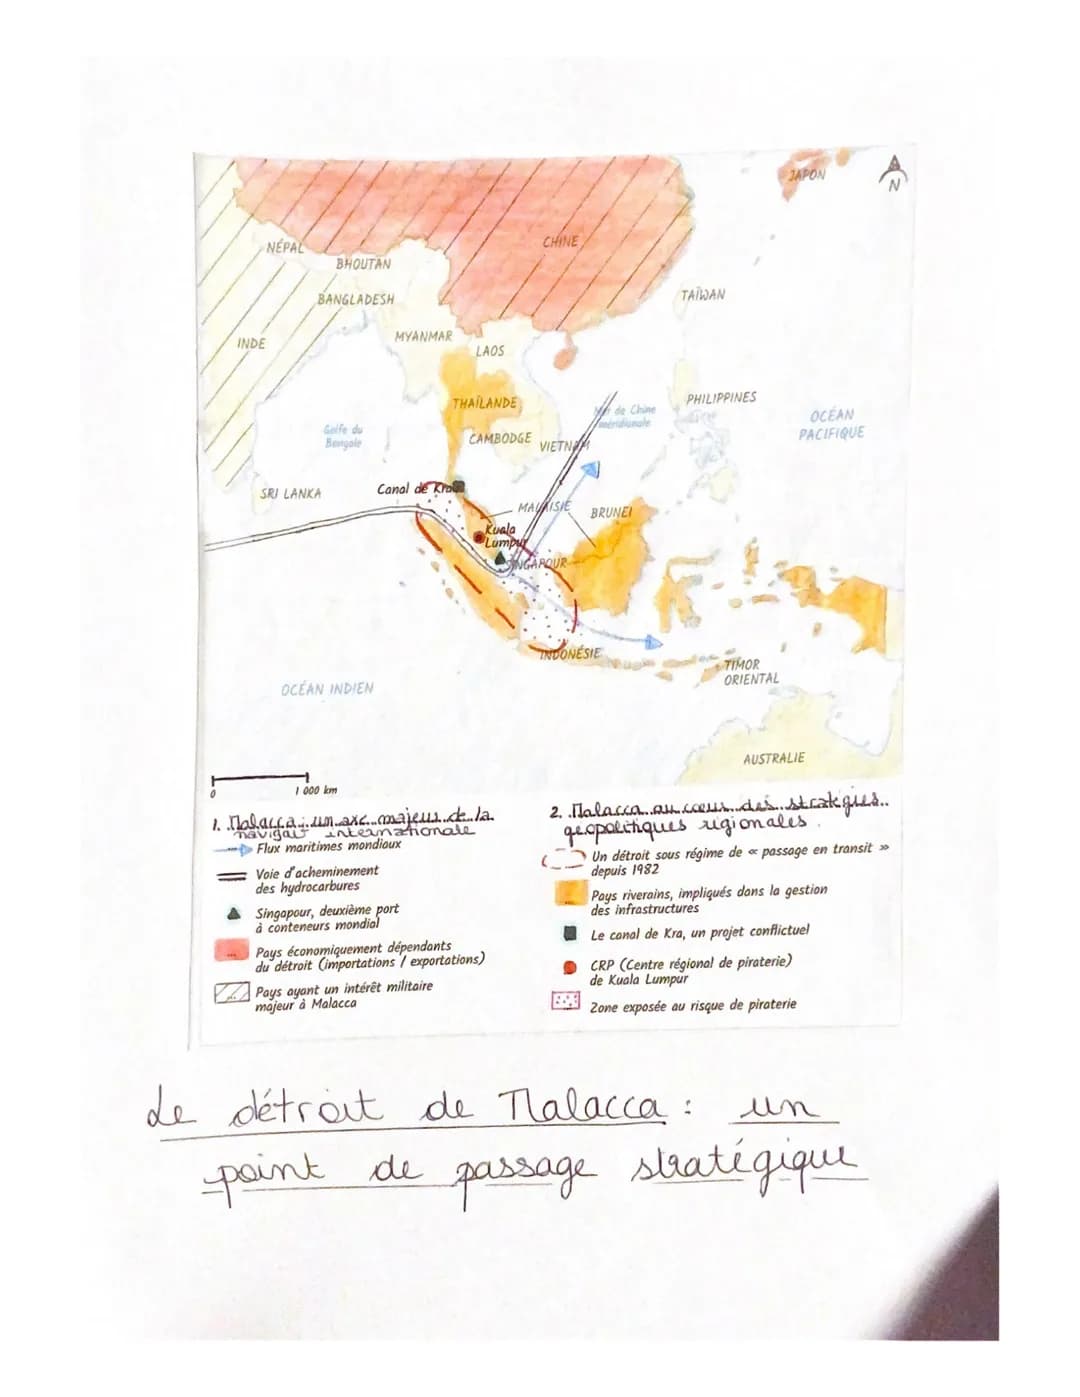 JAPON
N
NÉPAL
CHINE
BHOUTAN
BANGLADESH
TAÏWAN
INDE
MYANMAR
LAOS
THAÏLANDE
PHILIPPINES
Mer de Chine
méridionale
OCÉAN
PACIFIQUE
Golfe du
Bengale
CAMBODGE
VIETNAM
SRI LANKA
Canal de Kra
MALAISIE
BRUNEI
Kuala
Lumpur
SINGAPOUR
INDONÉSIE
TIMOR
ORIENTAL
OCÉAN INDIEN
AUSTRALIE
0 1 000 km
1. Malacca : un axe majeur de la
navigat° internationale
Flux maritimes mondiaux
Voie d'acheminement
des hydrocarbures
Singapour, deuxième port
à conteneurs mondial
Pays économiquement dépendants
du détroit (importations / exportations)
Pays ayant un intérêt militaire
majeur à Malacca
2. Malacca au cœur des stratégies
géopolitiques régionales.
Un détroit sous régime de « passage en transit »
depuis 1982
Pays riverains, impliqués dans la gestion
des infrastructures
Le canal de Kra, un projet conflictuel
CRP (Centre régional de piraterie)
de Kuala Lumpur
Zone exposée au risque de piraterie
Le détroit de Malacca : un
point de passage stratégique